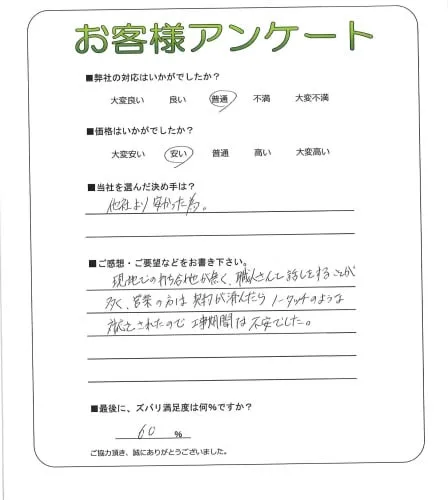 お客様アンケート
■弊社の対応はいかがでしたか？
大変良い　良い　普通　不満　大変不満
■価格はいかがでしたか？
大変安い　安い　普通　高い　大変高い
■当社を選んだ決め手は？
他社より安かった為。
■ご感想・ご要望などをお書き下さい。
現地での打ち合せが無く、職人さんと話しをすることが
多く、営業の方は契約が済んだらノータッチのような
されたので工事期間は不安でした。
■最後に、ズバリ満足度は何％ですか？
60 ％
ご協力頂き、誠にありがとうございました。